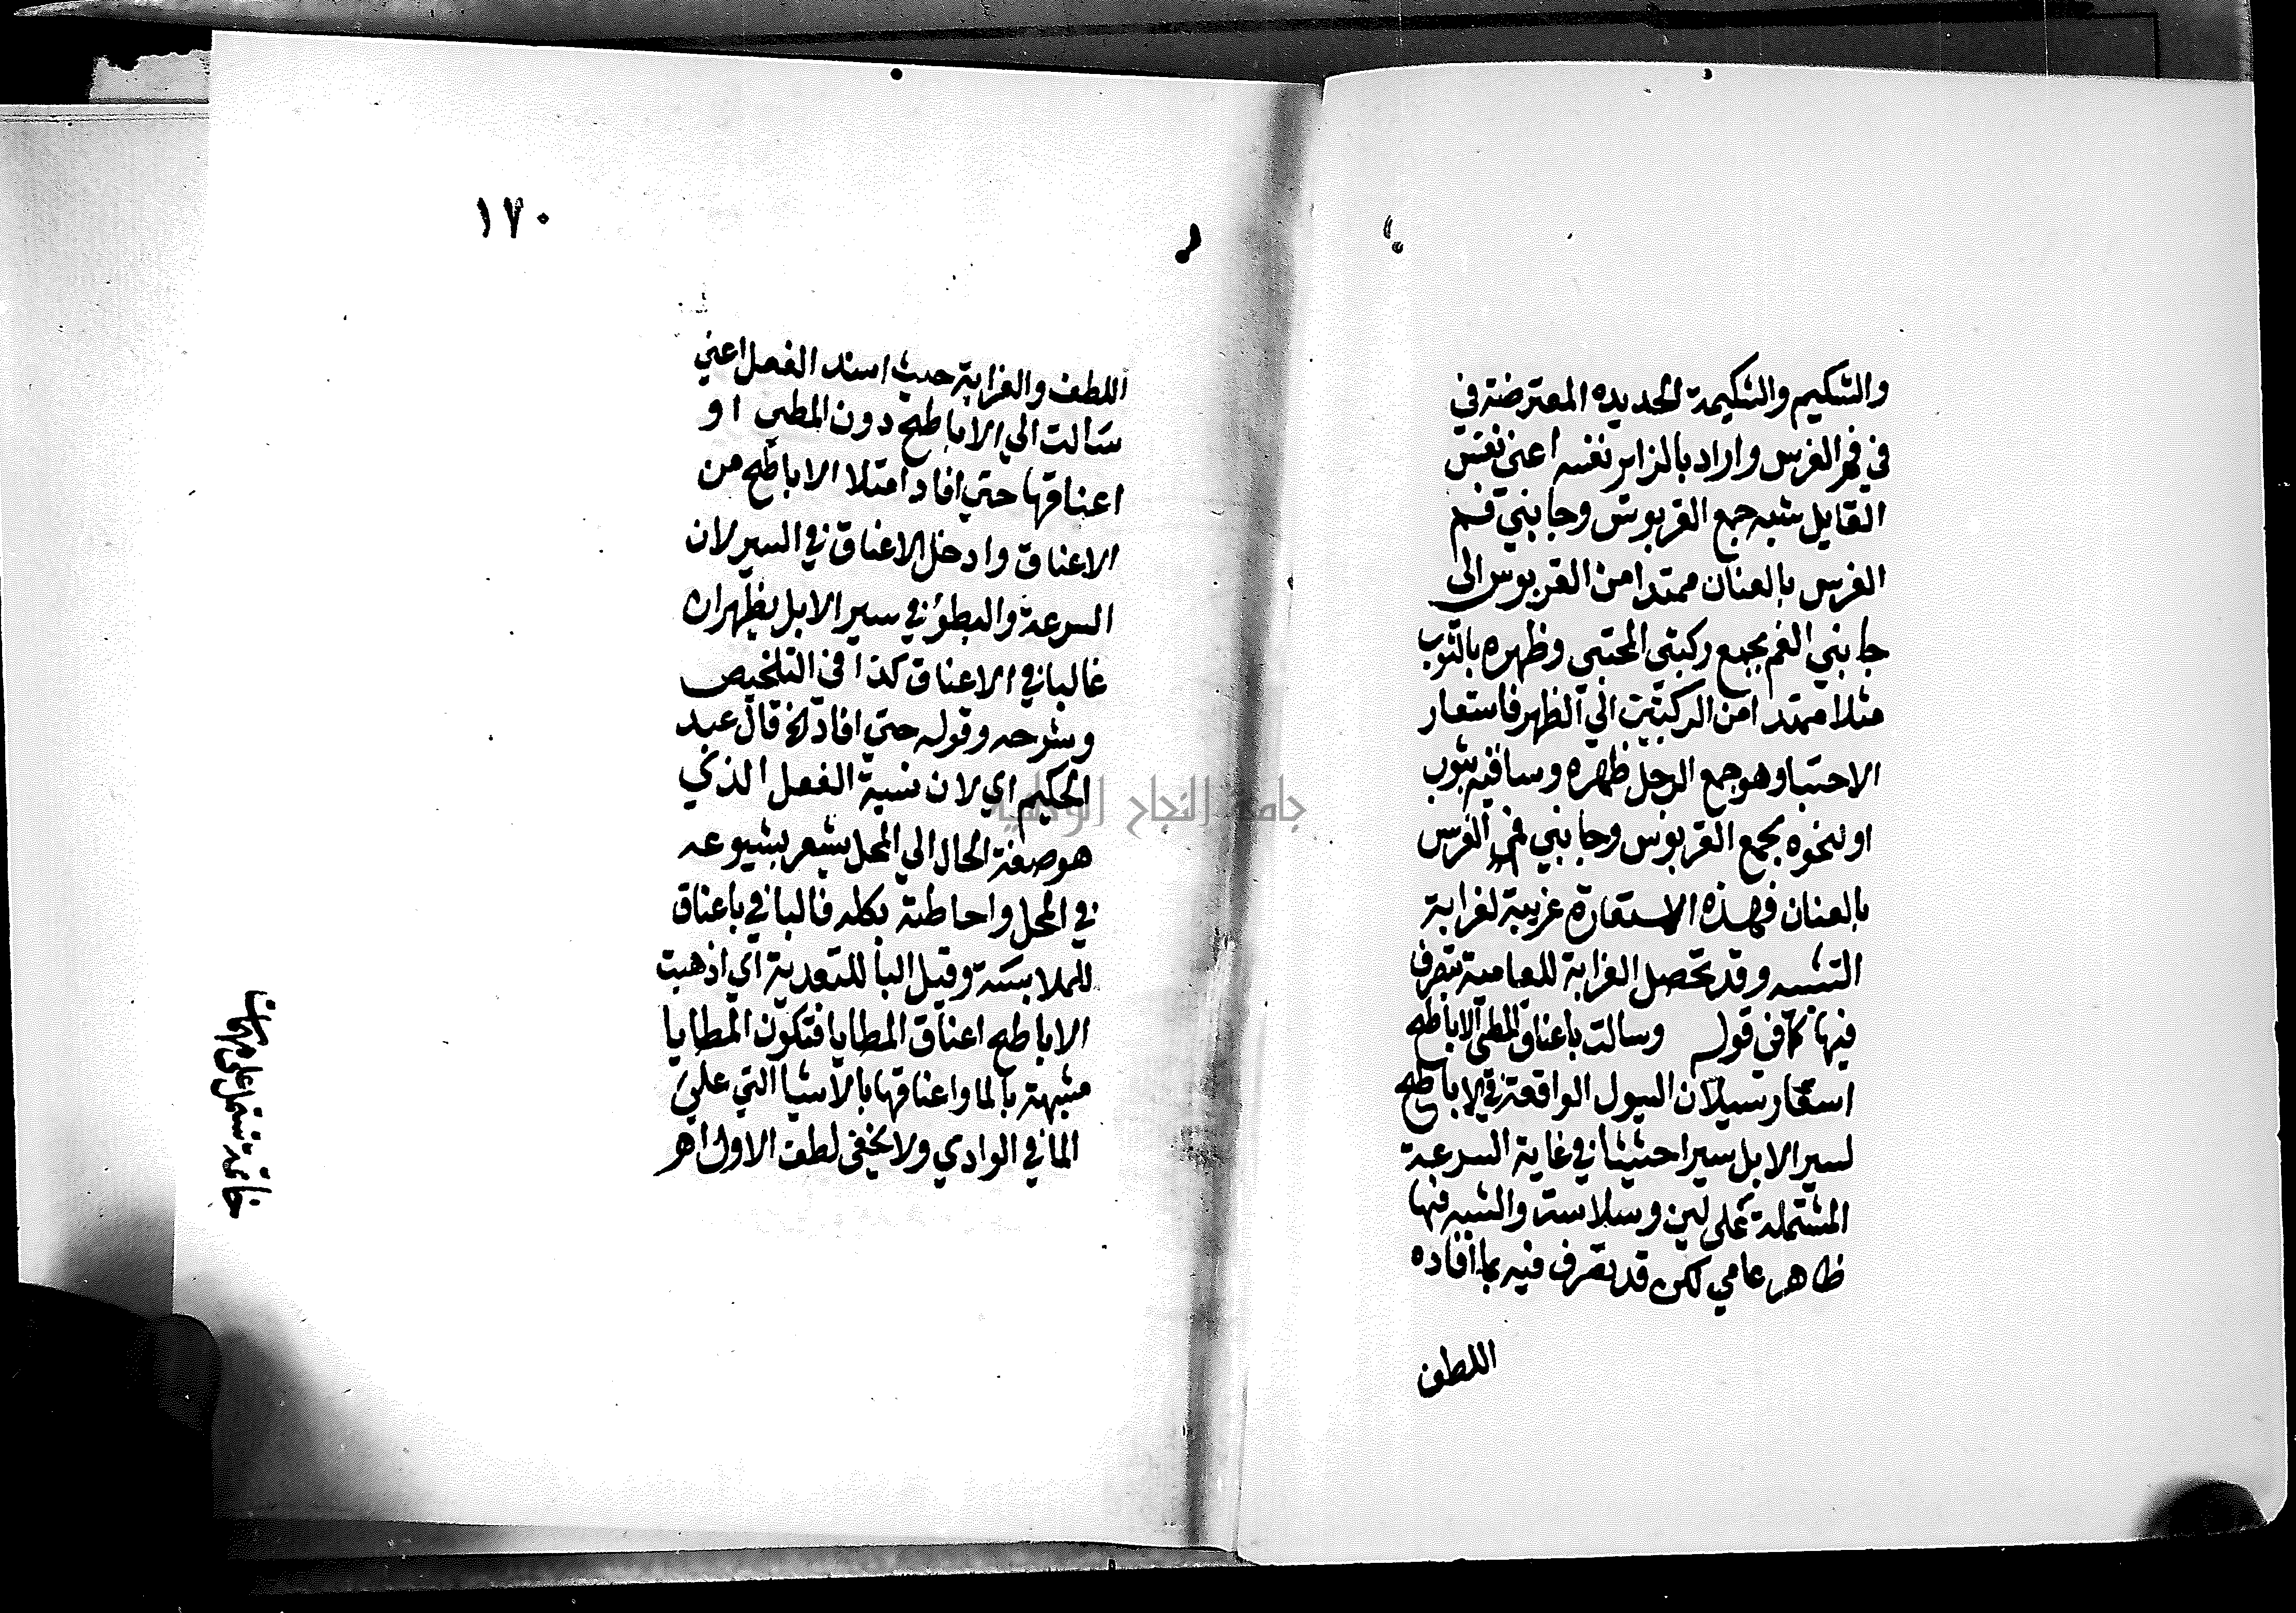 والشكيم والشكيمة الحديده المعترضة في
في فم الفرس واراد بالزاير نفسه اعني نفس
القايل شبه جمع القربوس وجانبي فم
الفرس بالعنان ممتدا من القربوس الى
جانبي الفم بجمع ركبتي المحتبي وظهره بالثوب
مثلا ممتدا من الركبتين الي الظهر فاستعار
الاحتبا وهو جمع الرجل ظهره وساقيه بثوب
او نحوه بجمع القربوس وجانبي فم الفرس
بالعنان فهذه الاستعارة غريبة لغرابة
التشبيه وقد تحصل الغرابة للعامية بتصرف
فيها كما في قوله وسالت باعناق المطي الاباطح
استعار سيلان السيول الواقعة في الاباطح
لسير الابل سيرا حثيثا في غاية السرعة
المشتملة على لين وسلاسة والشبه فيها
ظاهر عامي لكن قد تصرف فيه بما افاده
اللطف
١٧٠
اللطف والغرابة حيث اسند الفعل اعني
سالت الي الاباطح دون المطي او
اعناقها حتي افاد امتلا الاباطح من
الاعناق وادخل الاعناق في السير لان
السرعة والبطؤ في سير الابل يظهران
غالبا في الاعناق كذا في التلخيص
وشرحه وقوله حتي افاد الخ قال عبد
الحكيم اي لان نسبة الفعل الذي
هو صفة الحال الي المحل يشعر بشيوعه
في المحل واحاطته بكله فالبا في باعناق
للملابسة وقيل البا للتعدية اي اذهبت
الاباطح اعناق المطايا فتكون المطايا
مشبهة بالما واعناقها بالاشيا التي علي
الما في الوادي ولا يخفى لطف الاول اهر
خاتمة تشتمل على
جامعة النجاح الوطنية